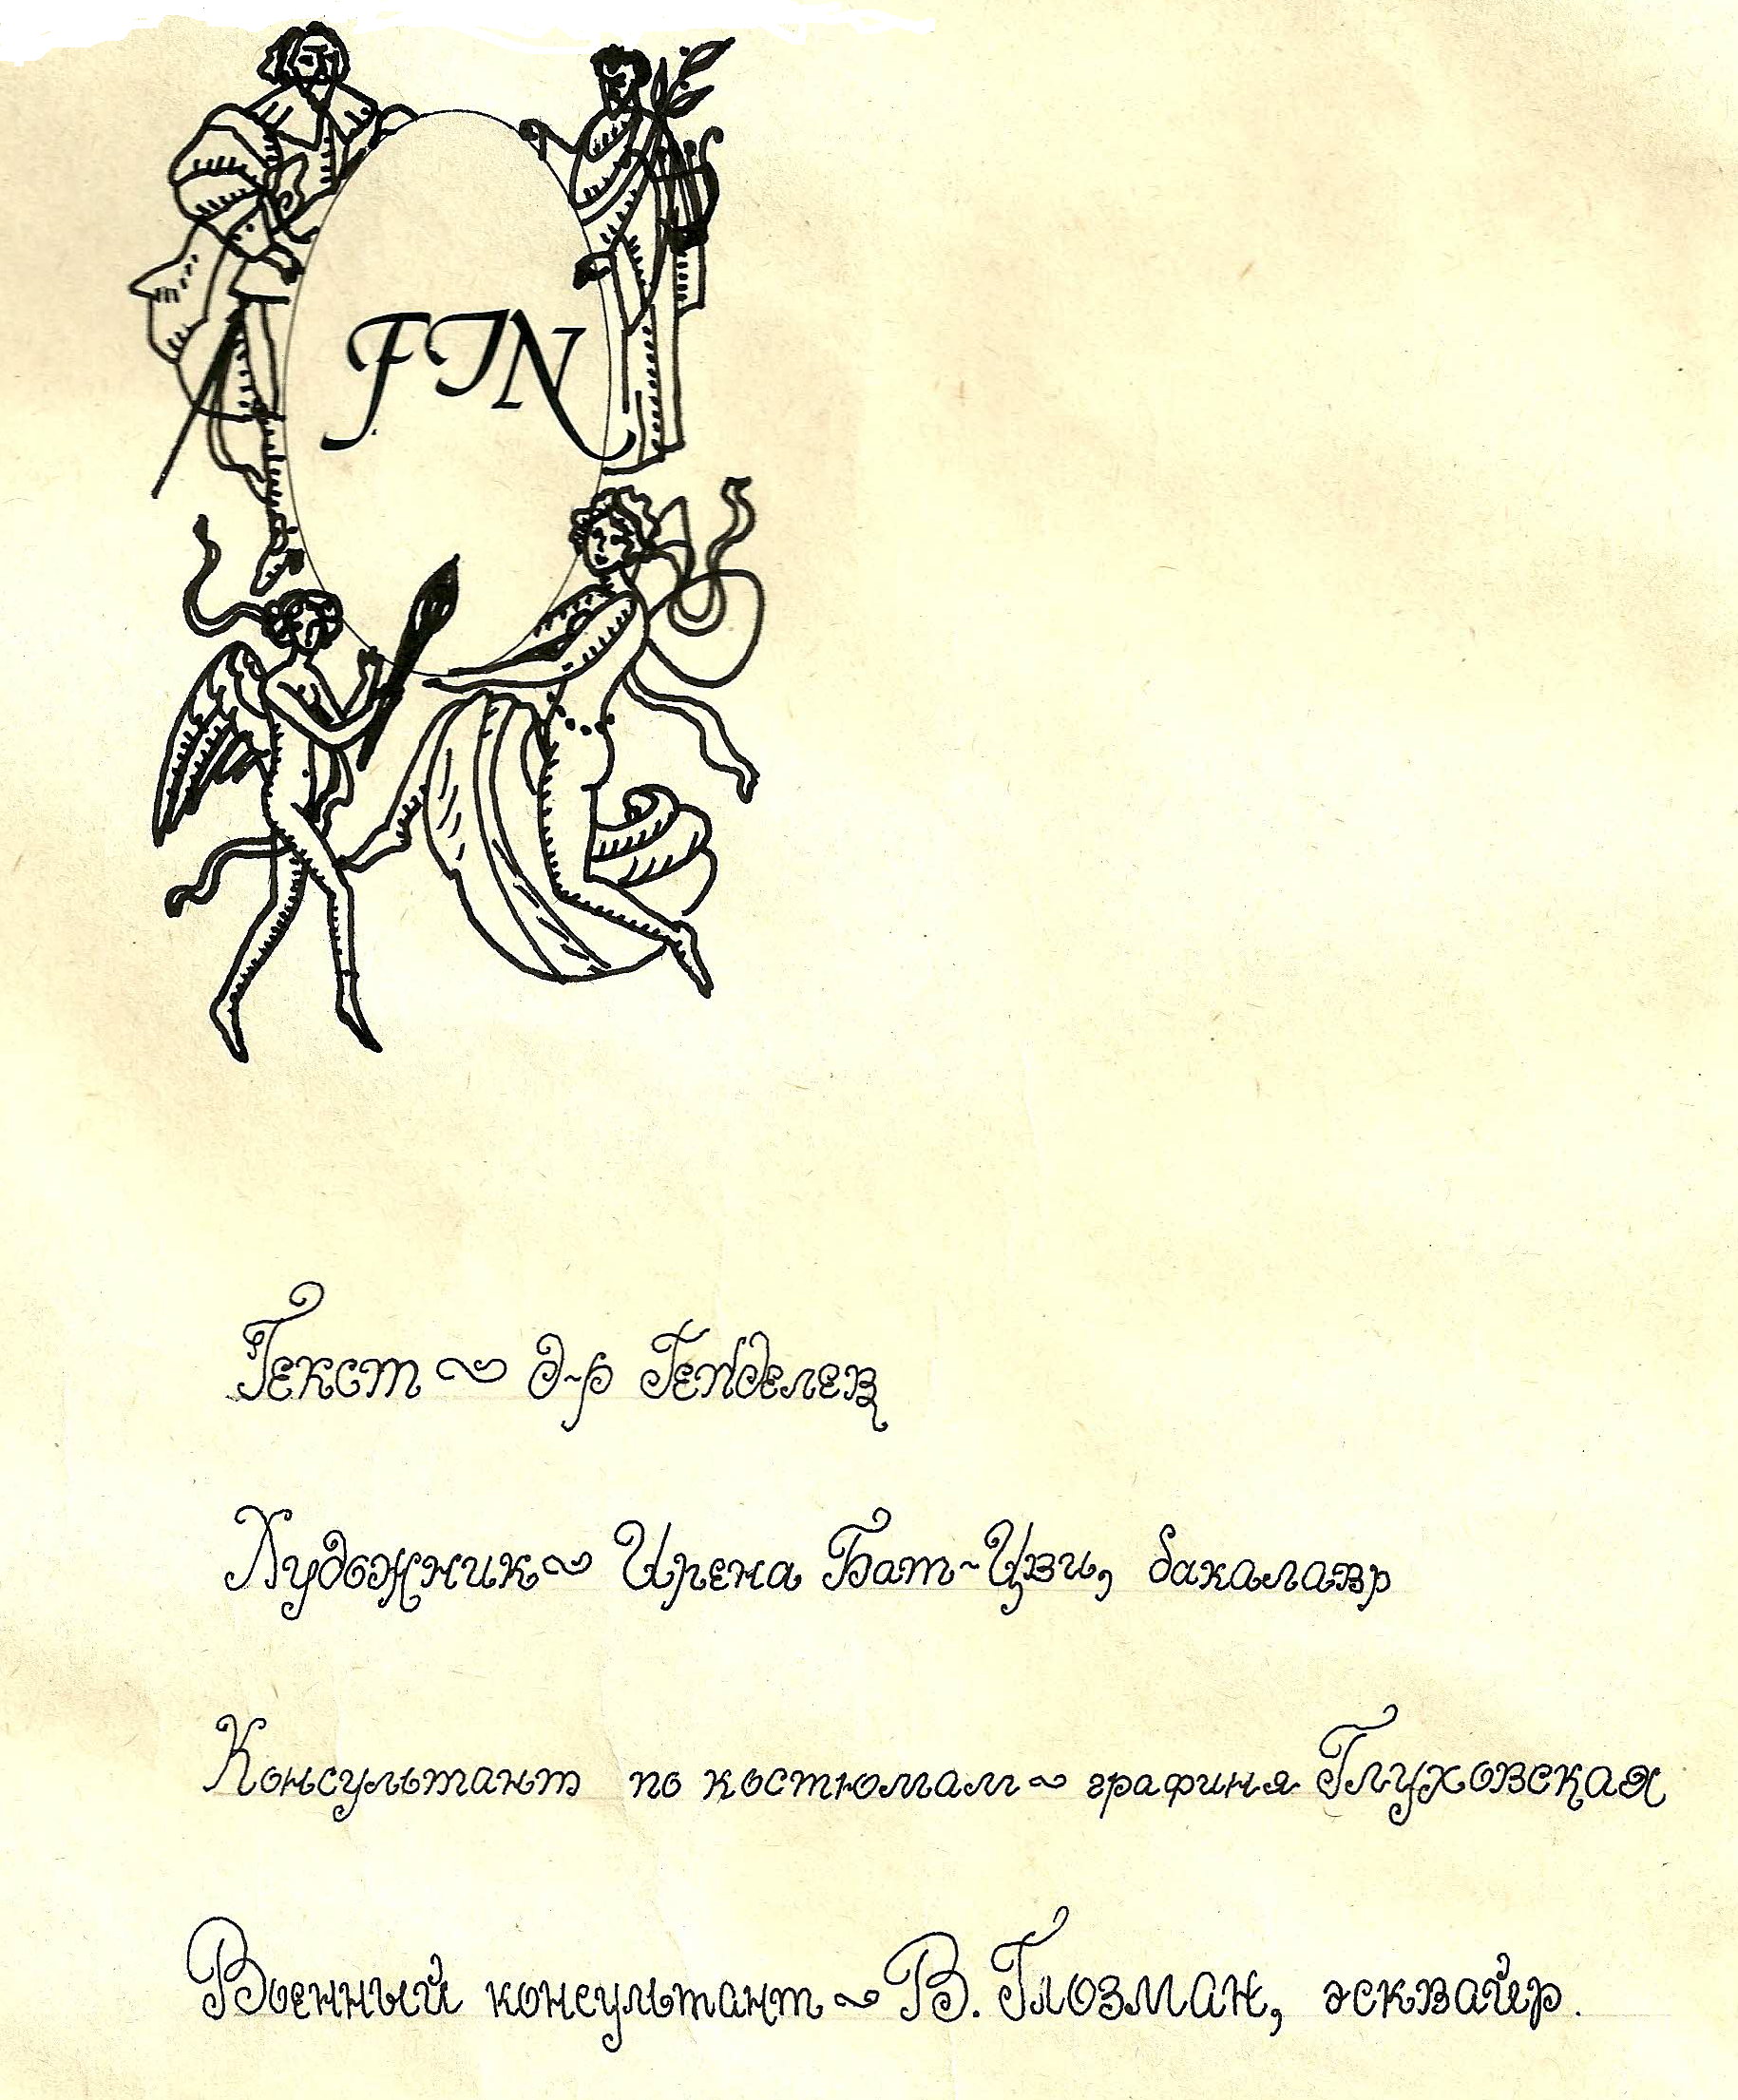 FIN
Текст ~ д-р Генделец
Художник ~ Ирена Бат-Цви, бакалавр
Консультант по костюмам ~ графиня Глуховская
Военный консультант ~ В. Глозман, эсквайр.